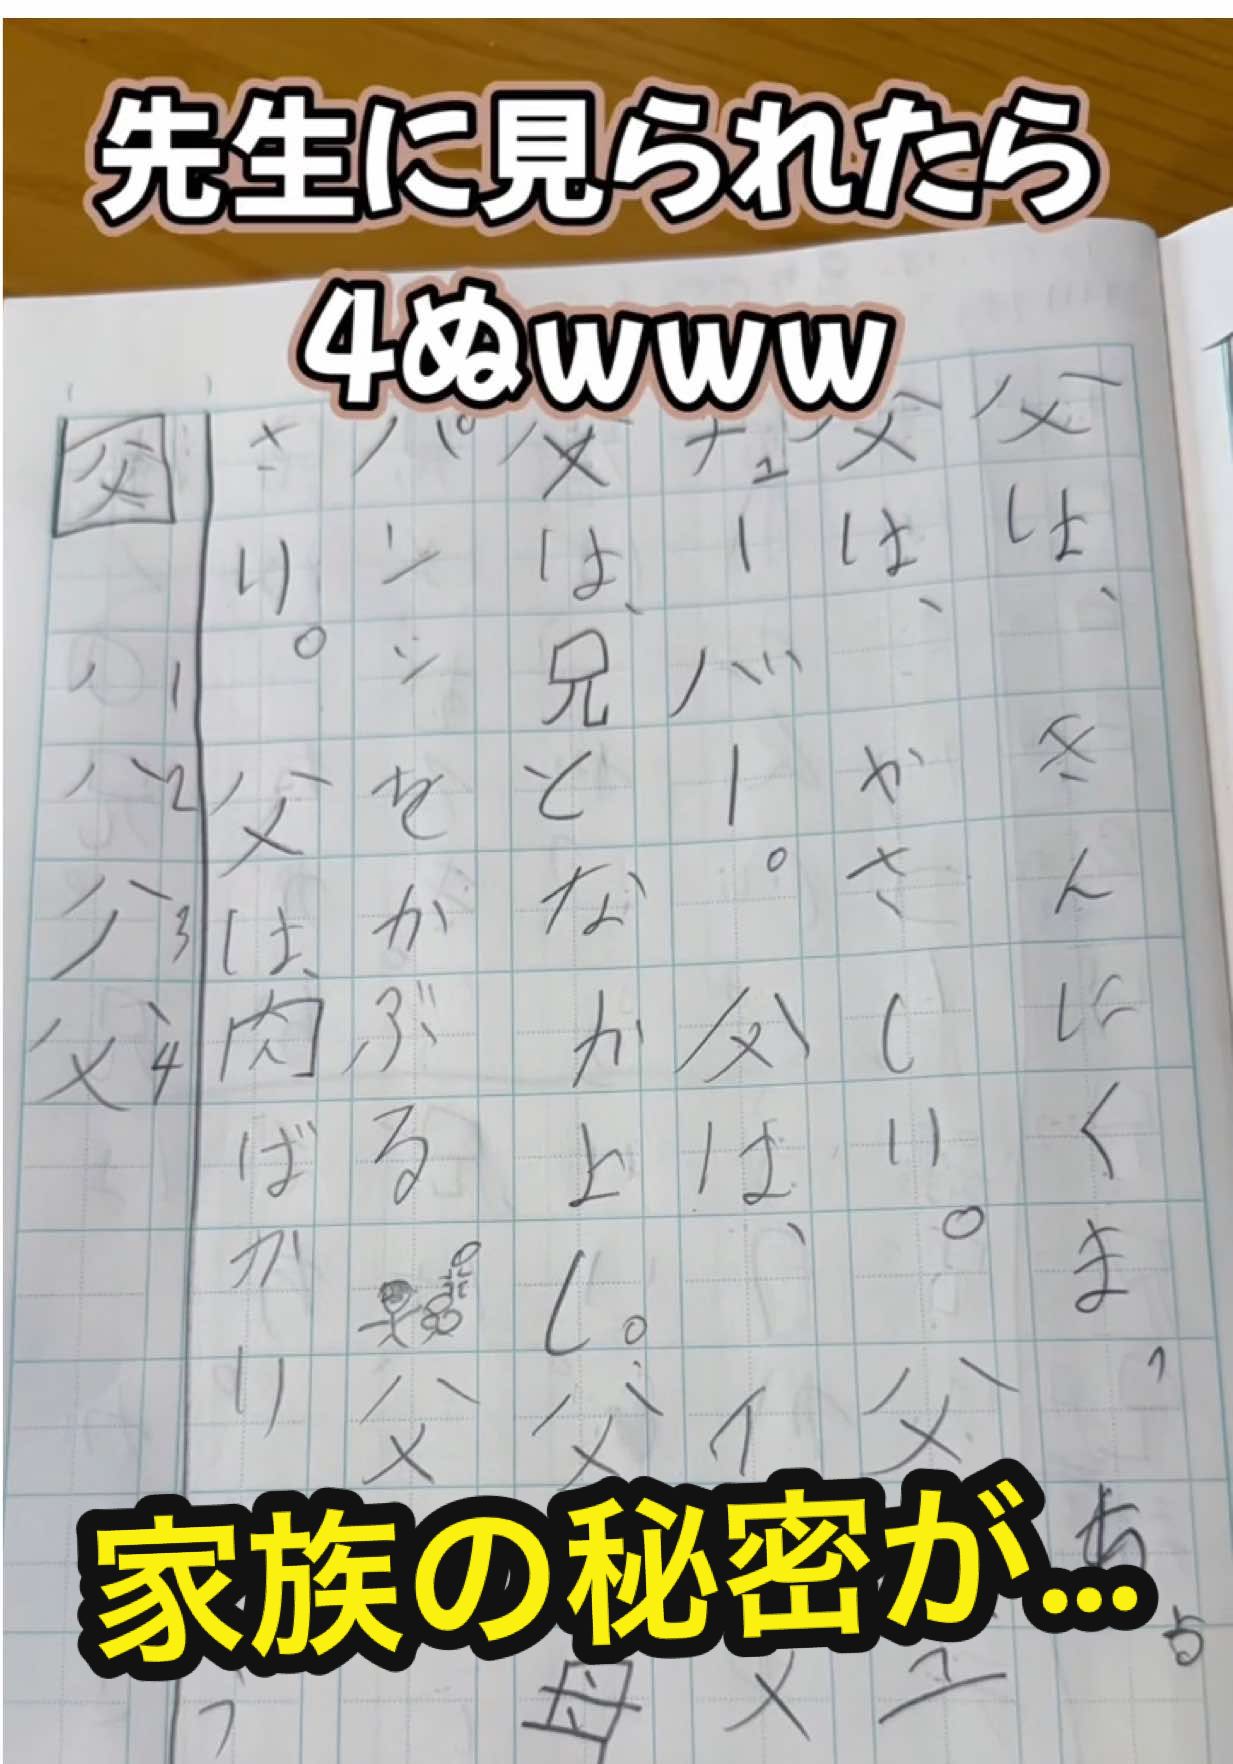 先生に見られたら
4ぬwww
父は、きんにくまっ
父は、やさしい。父ユ
チューバー。父は、イメ
父は、兄となか上し。父母
パンツをかぶる父
さり。父は、肉ばかり
父 1 2 3 4
家族の秘密が...